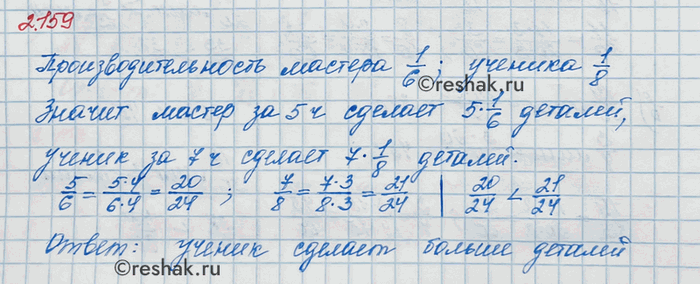 2.159
Производительность мастера 1/6; ученика 1/8
©reshak.ru
Значит мастер за 5 ч сделает 5·1/6 деталей,
ученик за 7 ч сделает 7·1/8 деталей.
5/6 = 5·4/6·4 = 20/24 ; 7/8 = 7·3/8·3 = 21/24 | 20/24 < 21/24
Ответ: ученик сделает больше деталей
©reshak.ru